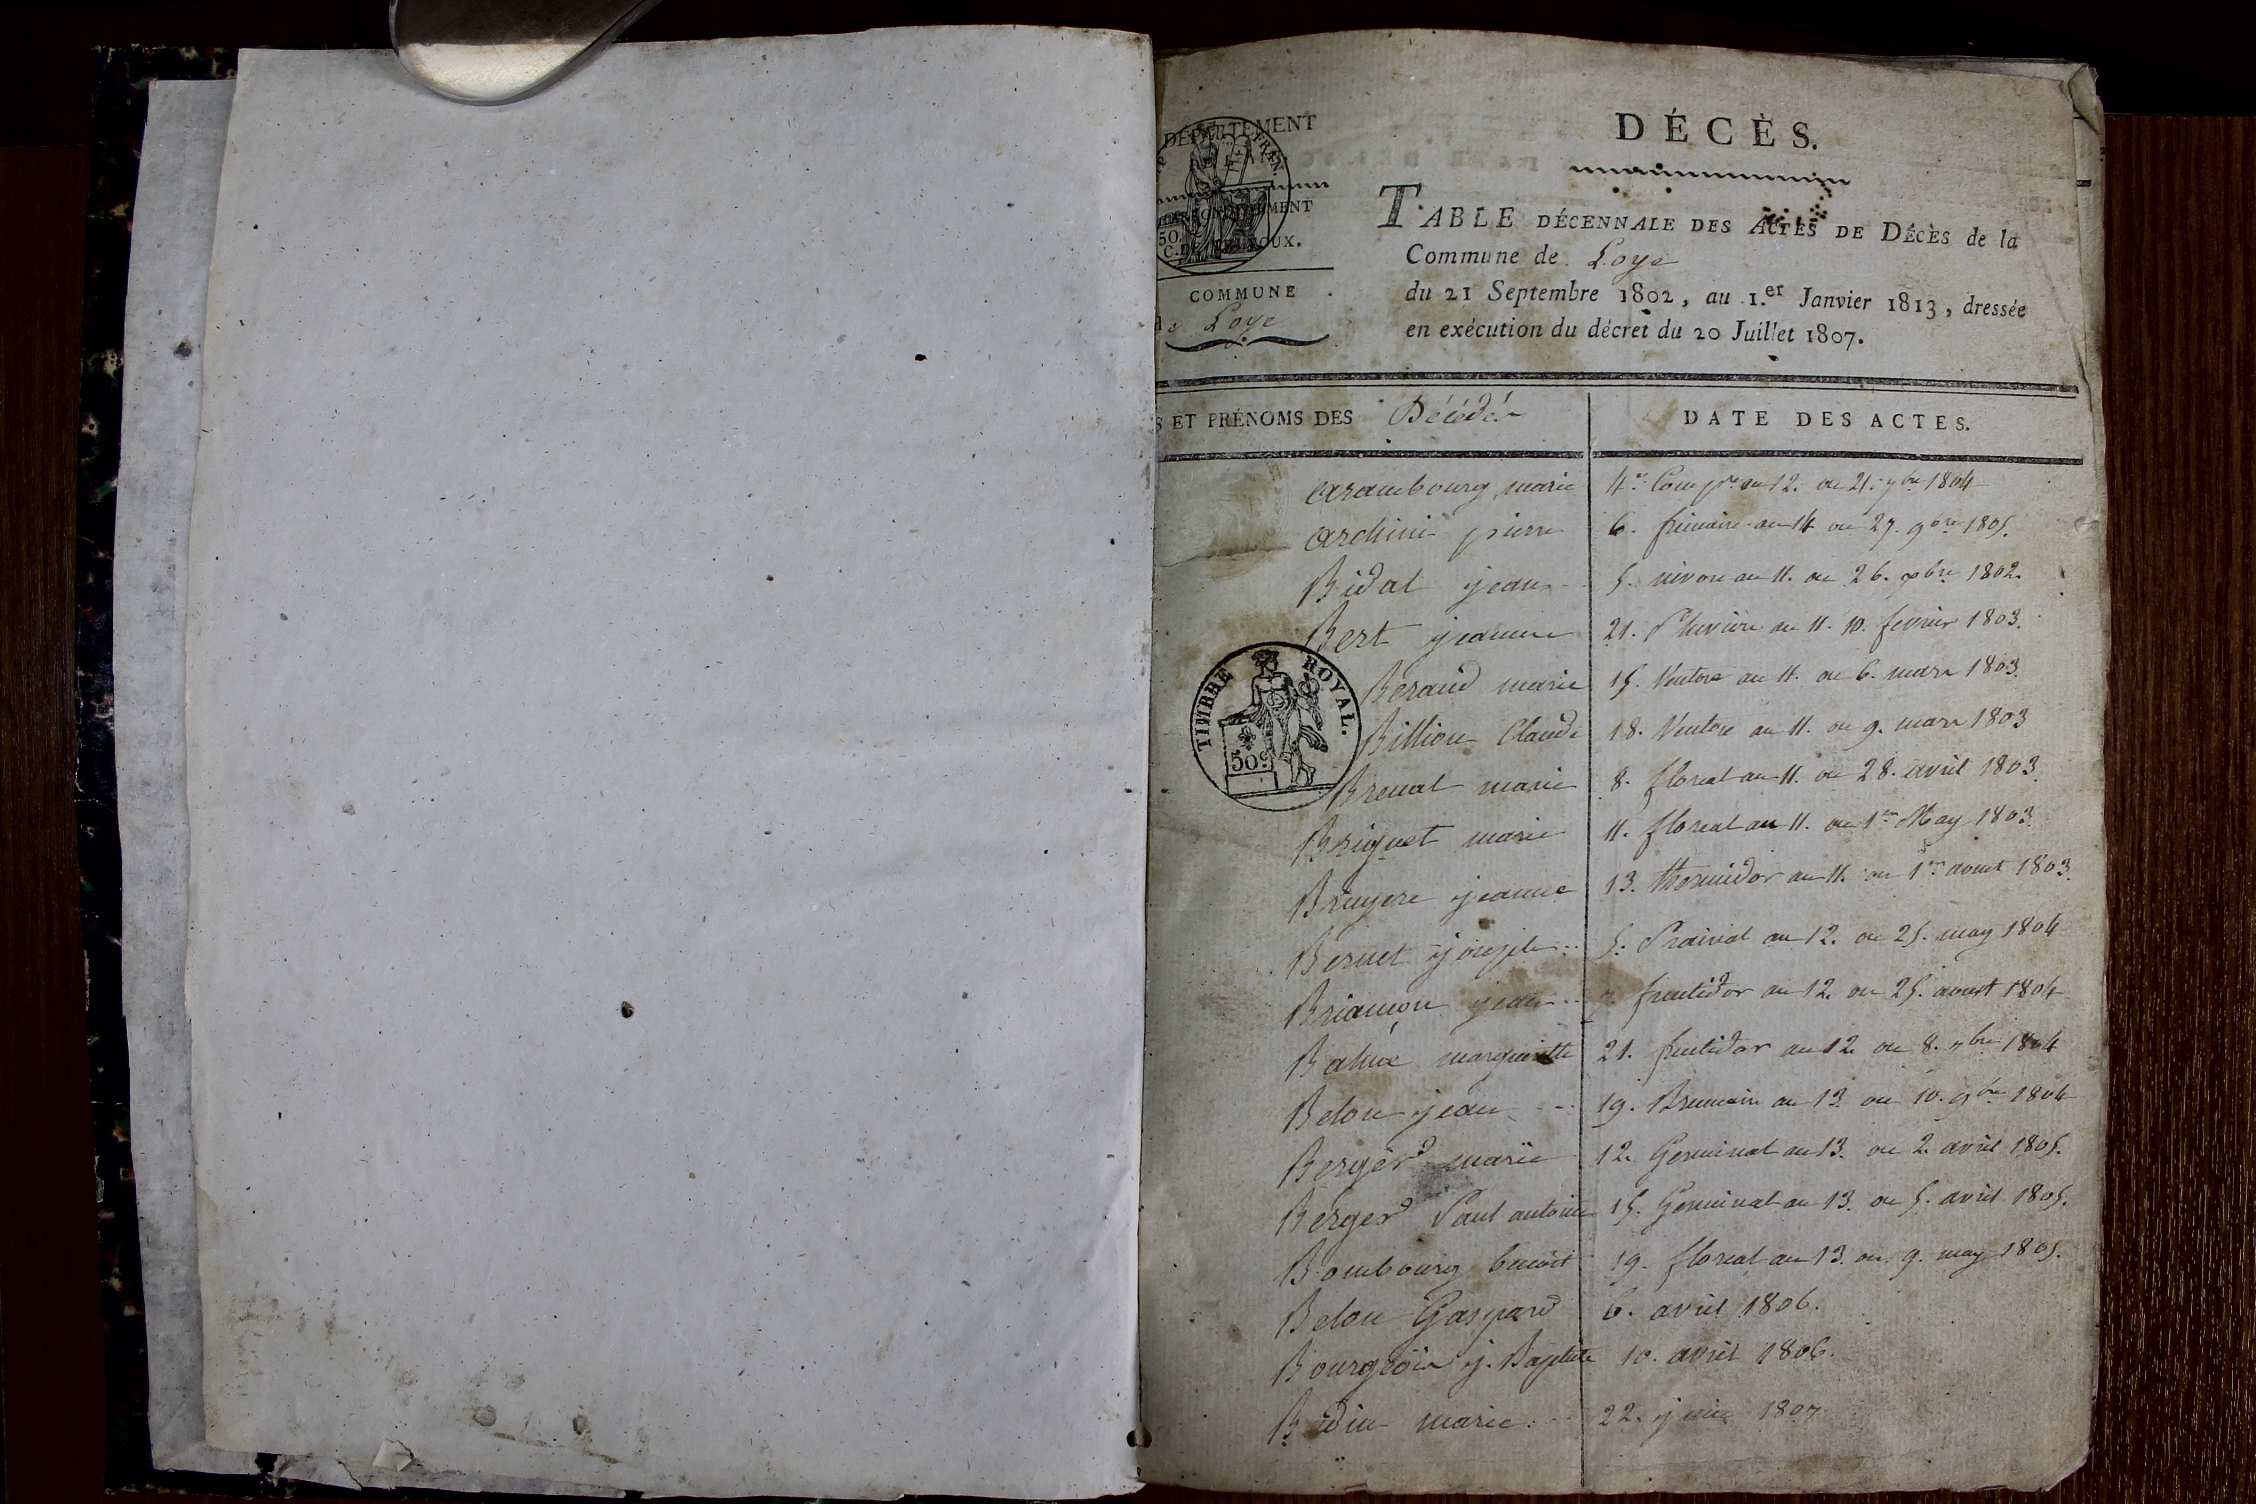 DÉPARTEMENT
FRAN.
50.
C.
OUX.
COMMUNE
de Loye
DÉCÈS.
TABLE DÉCENNALE DES ACTES DE DÉCÈS de la
Commune de Loye
du 21 Septembre 1802, au 1.er Janvier 1813, dressée
en exécution du décret du 20 Juillet 1807.
S ET PRÉNOMS DES Décédés
DATE DES ACTES.
arambourg marie 4e Compre an 12. ou 21. 7bre 1804
archini pierre 6. frimaire an 14 ou 27. 9bre 1805.
Bidal jean 5. nivose an 11. ou 26. xbre 1802.
Bert jeanne 21. Pluviose an 11. 10. fevrier 1803.
TIMBRE ROYAL.
50c
Beraud marie 15. Ventose an 11. ou 6. mars 1803.
Billion Claude 18. Ventose an 11. ou 9. mars 1803
Breval marie 8. floreal an 11. ou 28. avril 1803.
Briquet marie 11. floreal an 11. ou 1er May 1803.
Bruyere jeanne 13. thermidor an 11. ou 1er aoust 1803.
Bernet joseph 5. Prairial an 12. ou 25. may 1804
Briançon jean 7. fructidor an 12. ou 25. aoust 1804
Balme marguerite 21. fructidor an 12. ou 8. 7bre 1804
Belon jean 19. Brumaire an 13. ou 10. 9bre 1804
Berger marie 12. Germinal an 13. ou 2. avril 1805.
Berger Paul antoine 15. Germinal an 13. ou 5. avril 1805.
Bombourg benoit 19. floreal an 13. ou 9. may 1805.
Belon Gaspard 6. avril 1806.
Bourgeois j. Baptiste 10. avril 1806.
Bedin marie 22. juin 1807